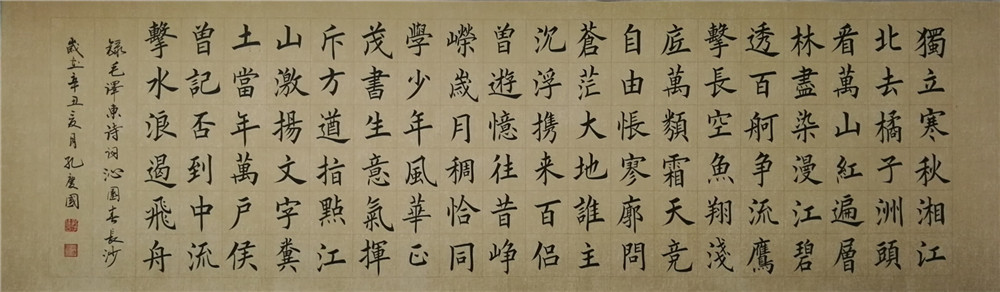 獨立寒秋湘江
北去橘子洲頭
看萬山紅遍層
林盡染漫江碧
透百舸争流鷹
擊長空魚翔淺
底萬類霜天竞
自由悵寥廓問
蒼茫大地誰主
沉浮携来百侣
曾遊憶往昔峥
嶸歲月稠恰同
學少年風華正
茂書生意氣揮
斥方遒指點江
山激揚文字糞
土當年萬户侯
曾記否到中流
擊水浪遏飛舟
録毛澤東詩詞沁園春長沙
歲在辛丑夏月孔慶國